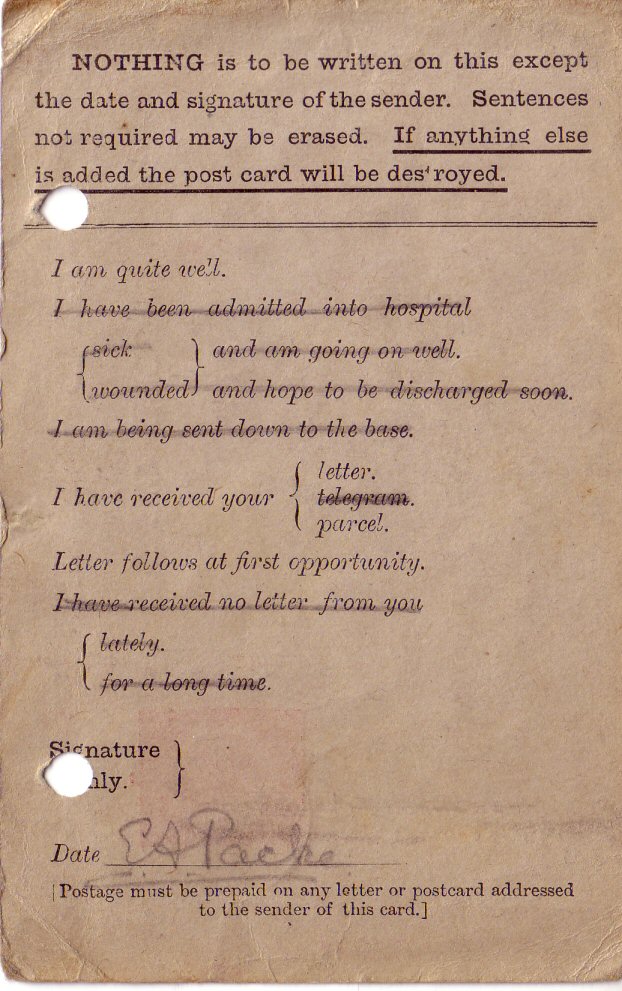 NOTHING is to be written on this except
the date and signature of the sender. Sentences
not required may be erased. If anything else
is added the post card will be des'royed.
I am quite well.
I have been admitted into hospital
sick and am going on well.
wounded and hope to be discharged soon.
I am being sent down to the base.
letter.
I have received your telegram.
parcel.
Letter follows at first opportunity.
I have received no letter from you
lately.
for a long time.
Signature
nly.
Date E A Packe
[Postage must be prepaid on any letter or postcard addressed
to the sender of this card.]